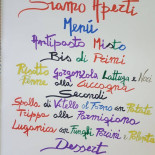 Siamo Aperti
Menú
Antipasto Misto
Bis di Primi
Risotto Gorgonzola Lattuga e Noci
Penne alla Ciccogna
Secondi
Spalla di Vitello al Forno con Patate
Trippa alla Parmigiana
Luganica con Funghi Porcini e Polenta
Dessert